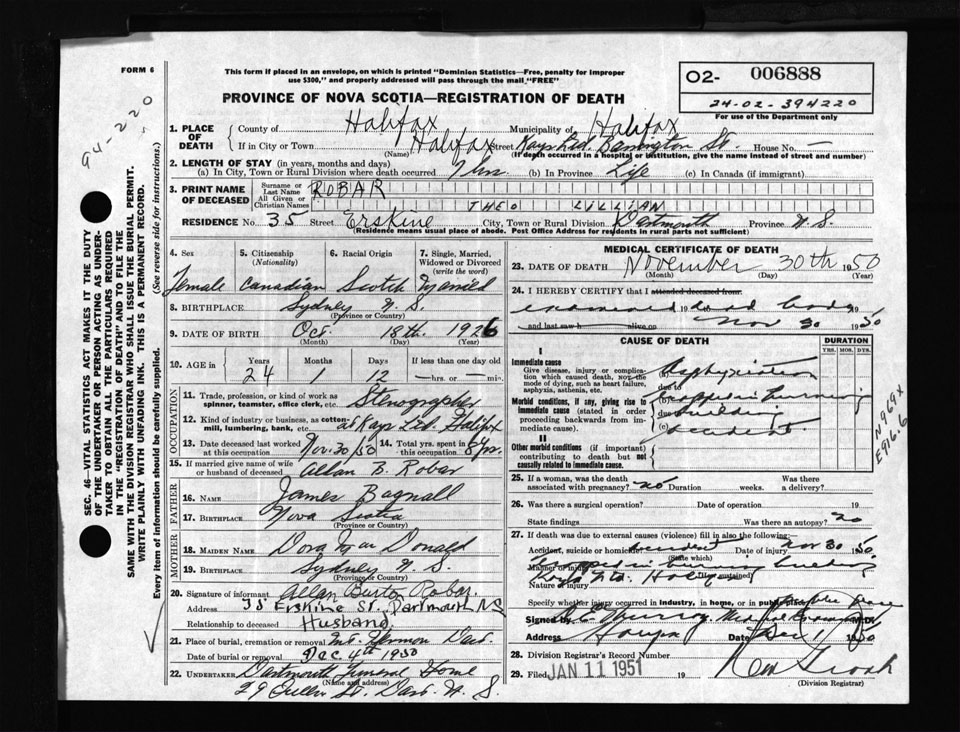 FORM 6
This form if placed in an envelope, on which is printed "Dominion Statistics—Free, penalty for improper
use $300," and properly addressed will pass through the mail "FREE"
PROVINCE OF NOVA SCOTIA—REGISTRATION OF DEATH
02- 006888
24-02-394220
For use of the Department only
94-220
SEC. 46—VITAL STATISTICS ACT MAKES IT THE DUTY
OF THE UNDERTAKER OR PERSON ACTING AS UNDER-
TAKER TO OBTAIN ALL THE PARTICULARS REQUIRED
IN THE "REGISTRATION OF DEATH" AND TO FILE THE
SAME WITH THE DIVISION REGISTRAR WHO SHALL ISSUE THE BURIAL PERMIT.
WRITE PLAINLY WITH UNFADING INK. THIS IS A PERMANENT RECORD.
Every item of information should be carefully supplied. (See reverse side for instructions.)
1. PLACE OF DEATH
County of Halifax Municipality of Halifax
If in City or Town Halifax Street Kays Ltd. Barrington St. House No. —
(Name) (If death occurred in a hospital or institution, give the name instead of street and number)
2. LENGTH OF STAY (in years, months and days)
(a) In City, Town or Rural Division where death occurred (b) In Province Life (c) In Canada (if immigrant)
3. PRINT NAME OF DECEASED
Surname or Last Name ROBAR
All Given or Christian Names THEO LILLIAN
RESIDENCE No. 35 Street Erskine City, Town or Rural Division Dartmouth Province N.S.
(Residence means usual place of abode. Post Office Address for residents in rural parts not sufficient)
4. Sex 5. Citizenship (Nationality) 6. Racial Origin 7. Single, Married, Widowed or Divorced (write the word)
Female Canadian Scotch Married
8. BIRTHPLACE Sydney N.S.
(Province or Country)
9. DATE OF BIRTH Oct. 18th. 1926
(Month) (Day) (Year)
10. AGE in Years Months Days If less than one day old
24 1 12 —hrs. or —min.
OCCUPATION
11. Trade, profession, or kind of work as spinner, teamster, office clerk, etc. Stenographer
12. Kind of industry or business, as cotton-mill, lumbering, bank, etc. at Kays Ltd. Halifax
13. Date deceased last worked at this occupation Nov. 30/50 14. Total yrs. spent in this occupation 8 yrs.
15. If married give name of wife or husband of deceased Allan B. Robar
FATHER
16. NAME James Bagnall
17. BIRTHPLACE Nova Scotia
(Province or Country)
MOTHER
18. MAIDEN NAME Dora MacDonald
19. BIRTHPLACE Sydney N.S.
(Province or Country)
20. Signature of informant Allan Burton Robar.
Address 35 Erskine St. Dartmouth NS
Relationship to deceased Husband
21. Place of burial, cremation or removal Mt. Hermon Dart.
Date of burial or removal Dec. 4th 1950
22. UNDERTAKER Dartmouth Funeral Home
(Name and address)
29 Queen St. Dart. N.S.
MEDICAL CERTIFICATE OF DEATH
23. DATE OF DEATH November 30th 1950
(Month) (Day) (Year)
24. I HEREBY CERTIFY that I attended deceased from
examined 19 dead body
and last saw h alive on Nov 30 1950
CAUSE OF DEATH DURATION
YRS. MOS. DYS.
I
Immediate cause
Give disease, injury or complication which caused death, not the mode of dying, such as heart failure, asphyxia, asthenia, etc.
(a) Asphyxiation
due to
Morbid conditions, if any, giving rise to immediate cause (stated in order proceeding backwards from immediate cause).
(b) trapped in burning
due to building
(c) accident
II
Other morbid conditions (if important) contributing to death but not causally related to immediate cause.
N969X
E916.6
25. If a woman, was the death associated with pregnancy? no Duration weeks. Was there a delivery?
26. Was there a surgical operation? Date of operation 19
State findings Was there an autopsy? no
27. If death was due to external causes (violence) fill in also the following:
Accident, suicide or homicide? accident Date of injury Nov 30 1950
(State which)
Manner of injury trapped in burning building
(How sustained)
Kays Ltd. Halifax
Nature of injury
Specify whether injury occurred in industry, in home, or in public place public place
Signed by Murray Medical Examiner M.D.
Address Date Dec 1 1950
28. Division Registrar's Record Number
29. Filed JAN 11 1951 19
(Division Registrar)